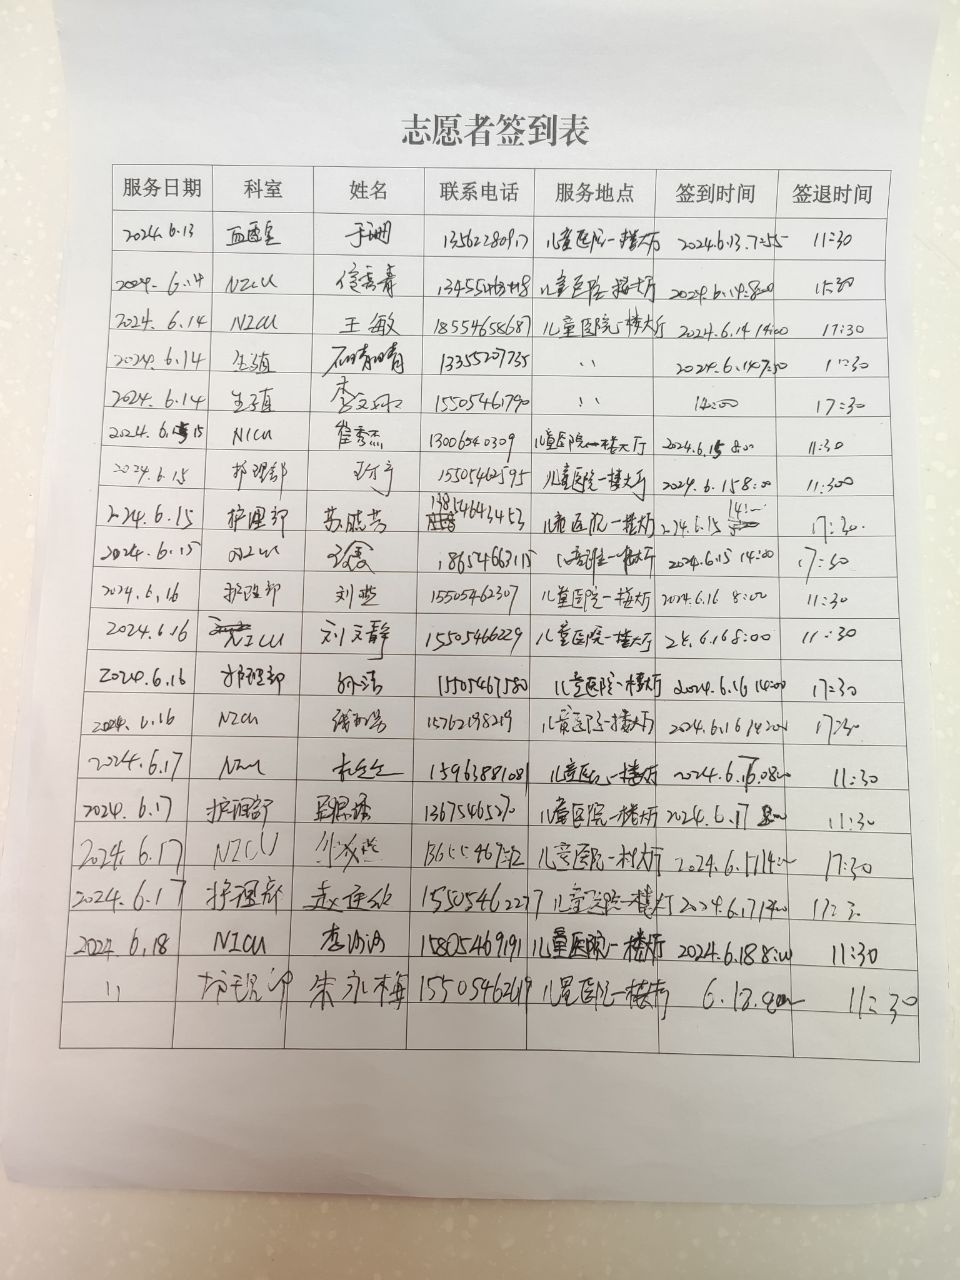 志愿者签到表
服务日期 科室 姓名 联系电话 服务地点 签到时间 签退时间
2024.6.13 于珊 13562280917 儿童医院一楼大厅 2024.6.13.7:55 11:30
2024.6.14 NICU 儿童医院一楼大厅 2024.6.14.8:00
2024.6.14 NICU 王敏 18554658687 儿童医院一楼大厅 2024.6.14 14:00 17:30
2024.6.14 生殖 石晴晴 13355207735 、、 2024.6.14 7:50 11:30
2024.6.14 生殖 15505461790 、、 14:00 17:30
2024.6.15 NICU 崔秀杰 儿童医院一楼大厅 2024.6.15 8:00 11:30
2024.6.15 护理部 15505462595 儿童医院一楼大厅 2024.6.15 8:00 11:300
2024.6.15 护理部 13854643453 儿童医院一楼大厅 2024.6.15 14:00 17:30
2024.6.15 NICU 18654663115 儿童医院一楼大厅 2024.6.15 14:00 17:30
2024.6.16 护理部 刘燕 15505462307 儿童医院一楼大厅 2024.6.16 8:00 11:30
2024.6.16 NICU 刘文静 15505466229 儿童医院一楼大厅 24.6.16 8:00 11:30
2024.6.16 护理部 孙洁 15505467580 儿童医院一楼大厅 2024.6.16 14:00 17:30
2024.6.16 NICU 15762198219 儿童医院一楼大厅 2024.6.16 14:00 17:30
2024.6.17 NICU 15963881081 儿童医院一楼大厅 11:30
2024.6.17 护理部 13675465270 儿童医院一楼大厅 2024.6.17 8:00 11:30
2024.6.17 NICU 儿童医院一楼大厅 2024.6.17 14:00 17:30
2024.6.17 护理部 15505462277 儿童医院一楼大厅 2024.6.17 14:00 17:30
2024.6.18 NICU 15805469191 儿童医院一楼大厅 2024.6.18 8:00 11:30
11 朱永梅 儿童医院一楼大厅 11:30